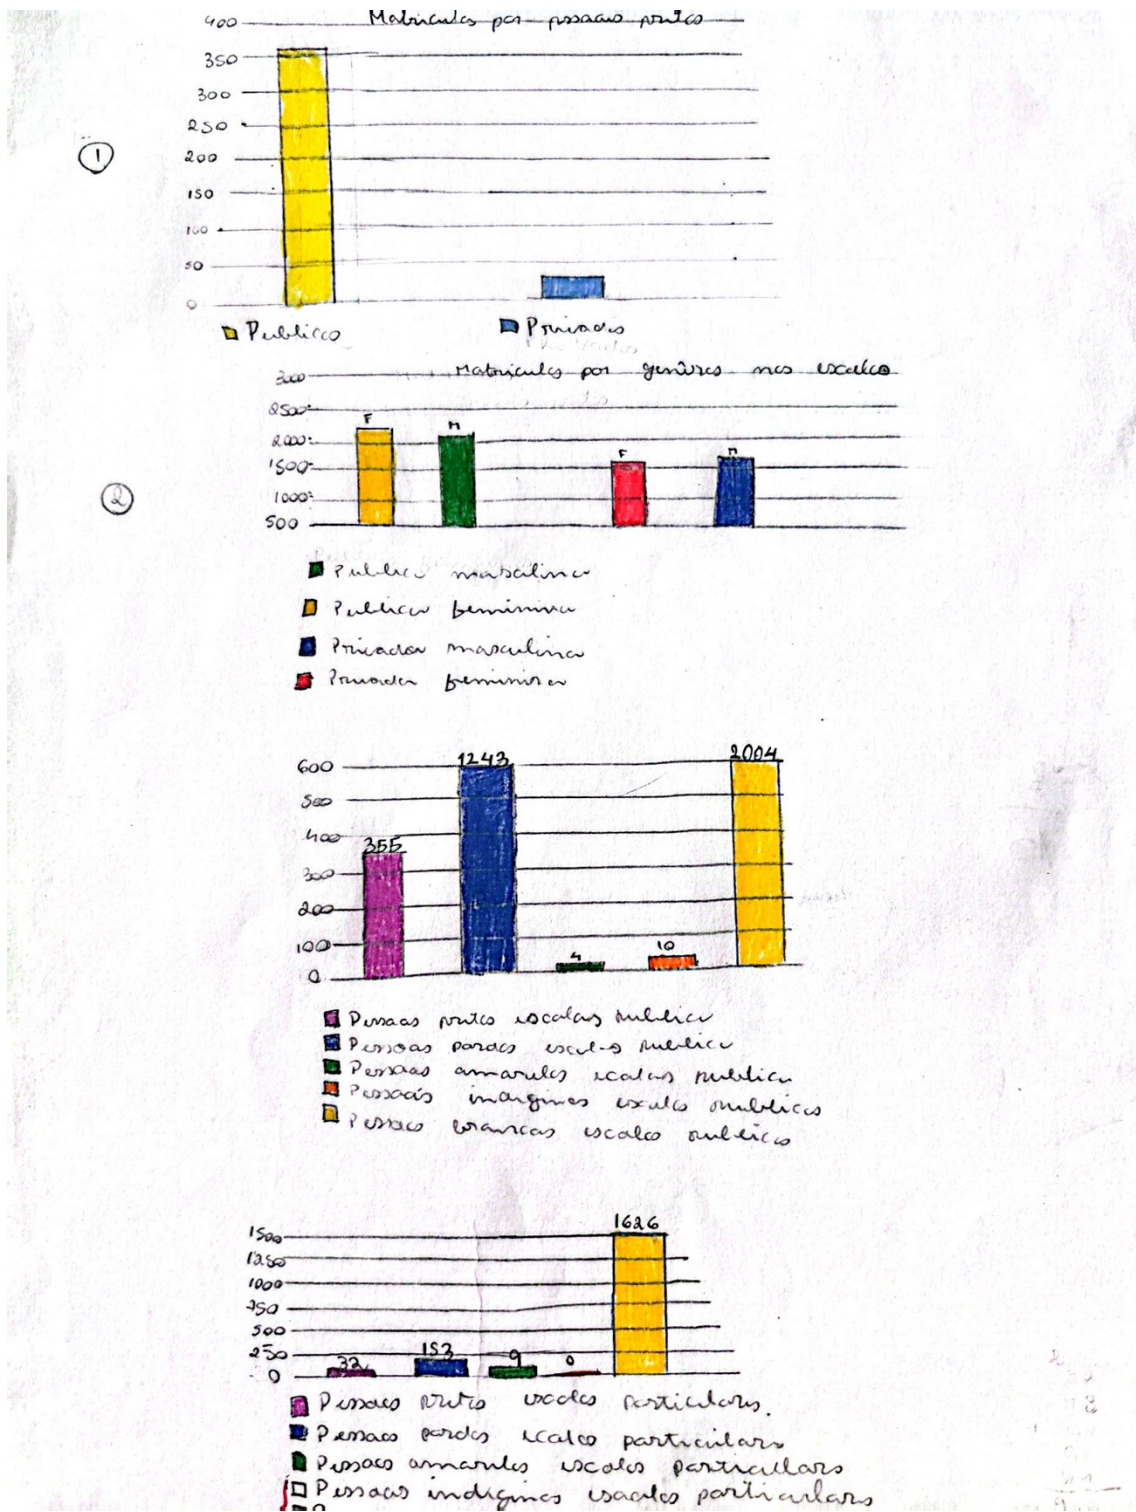 400 Matriculas por pessoas pretas
350
300
250
① 200
150
100
50
0
Publicas Privadas
3000 Matriculas por genêros nas escolas
2500
F M
2000
F M
1500
② 1000
500
Publica masculina
Publica feminina
Privada masculina
Privada feminina
1243 2004
600
500
400
355
300
200
100
4 10
0
Pessoas pretas escolas publica
Pessoas pardas escolas publica
Pessoas amarelas escolas publica
Pessoas indiginas escolas publicas
Pessoas brancas escolas publicas
1626
1500
1250
1000
750
500
250
32 153 9 0
0
Pessoas pretas escolas particulars.
Pessoas pardas escolas particulars
Pessoas amarelas escolas particullars
Pessoas indiginas escolas particulars